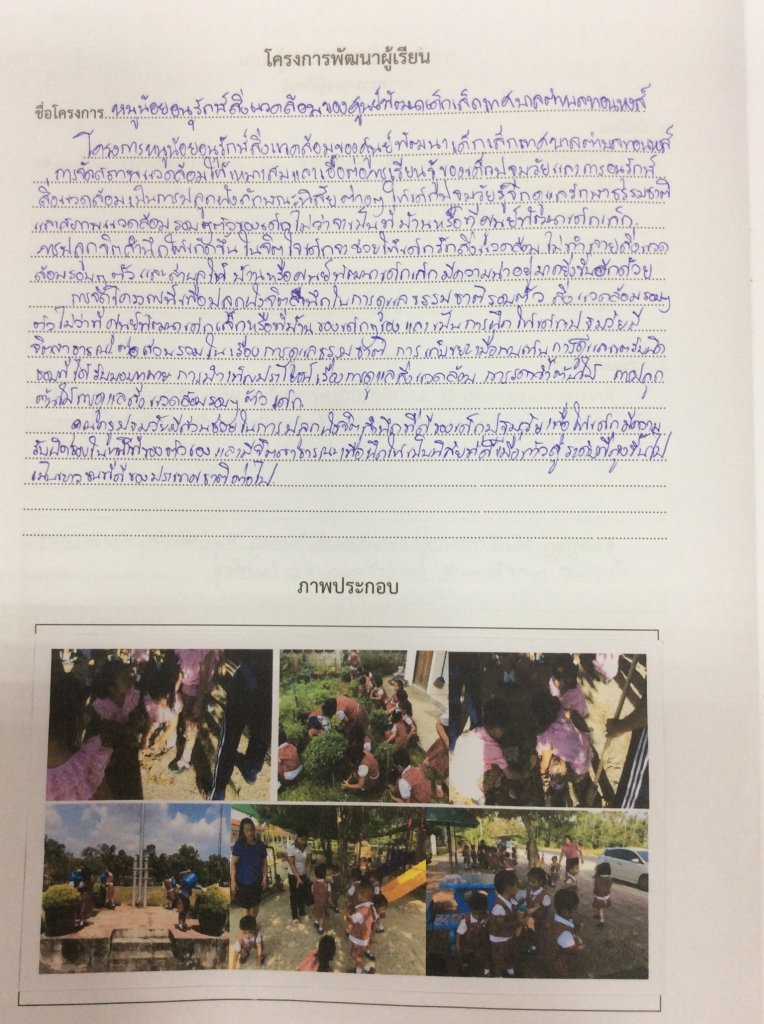 โครงการพัฒนาผู้เรียน
ชื่อโครงการ หนูน้อยอนุรักษ์สิ่งแวดล้อมของศูนย์พัฒนาเด็กเล็กเทศบาลตำบลทอนหงส์
โครงการหนูน้อยอนุรักษ์สิ่งแวดล้อมของศูนย์พัฒนาเด็กเล็กเทศบาลตำบลทอนหงส์
การจัดสภาพแวดล้อมให้เหมาะสมและเอื้อต่อการเรียนรู้ของเด็กปฐมวัยและการอนุรักษ์
สิ่งแวดล้อมเป็นการปลูกฝังลักษณะนิสัยต่างๆ ให้เด็กปฐมวัยรู้จักดูแลรักษาธรรมชาติ
และสภาพแวดล้อมรอบๆตัวของเด็ก ไม่ว่าจะเป็นที่บ้านหรือที่ศูนย์พัฒนาเด็กเล็ก
การปลูกจิตสำนึกให้เกิดขึ้นในจิตใจเด็กจะช่วยให้เด็กรักสิ่งแวดล้อม ไม่ทำลายสิ่งแวด
ล้อมรอบๆ ตัว และส่งผลให้ บ้านหรือศูนย์พัฒนาเด็กเล็กมีความน่าอยู่มากยิ่งขึ้นอีกด้วย
การจัดโครงการนี้เพื่อปลูกฝังจิตสำนึกในการดูแลธรรมชาติรอบตัว สิ่งแวดล้อมรอบๆ
ตัวไม่ว่าที่ศูนย์พัฒนาเด็กเล็กหรือที่บ้านของเด็กๆเอง และเป็นการฝึกให้เด็กปฐมวัยมี
จิตสาธารณะต่อส่วนรวมในเรื่องการดูแลธรรมชาติ การเก็บขยะเมื่อพบเห็น การดูแลเขตรับผิด
ชอบที่ได้รับมอบหมาย การบำเพ็ญประโยชน์เรื่องการดูแลสิ่งแวดล้อม การรดน้ำต้นไม้ การปลูก
ต้นไม้ การดูแลสิ่งแวดล้อมรอบๆ ตัวเด็ก
ครูปฐมวัยมีส่วนช่วยในการปลูกฝังจิตสำนึกที่ดีของเด็กปฐมวัย เพื่อให้เด็กมีความ
รับผิดชอบในหน้าที่ของตัวเอง และมีจิตสาธารณะเพื่อฝึกให้เป็นนิสัยที่ดี เมื่อก้าวสู่ระดับที่สูงขึ้นไป
เป็นเยาวชนที่ดีของประเทศชาติต่อไป
ภาพประกอบ